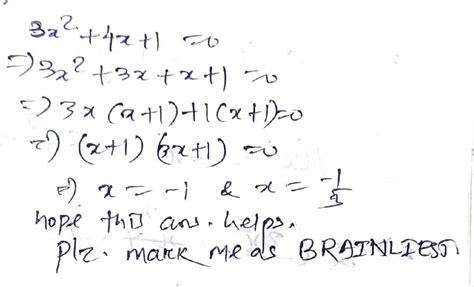 3x² + 4x + 1 = 0
⇒) 3x² + 3x + x + 1 = 0
⇒) 3x (x+1) + 1 (x+1) = 0
⇒) (x+1) (3x+1) = 0
⇒) x = -1 & x = -1/3
hope this ans. helps.
Plz. mark me as BRAINLIEST